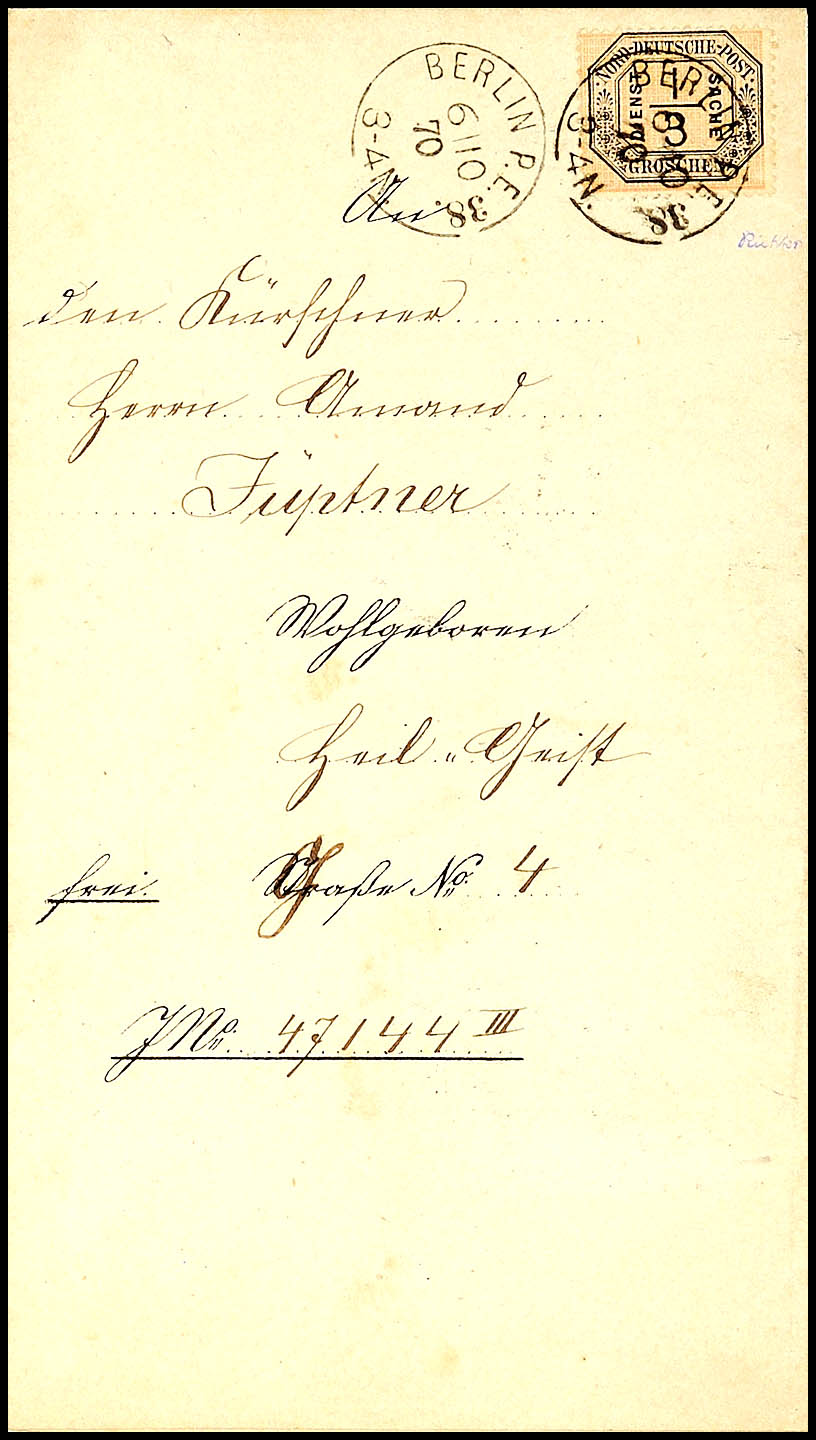 BERLIN P.E. 38.
6/10
70
3-4N.
NORD-DEUTSCHE-POST
DIENST 1/3 SACHE
GROSCHEN
BERLIN P.E. 38
3-4N.
An
den Kürschner
Herrn Amand
Jüptner
Wohlgeboren
Heil. Geist
frei. Straße No. 4
JNo. 47144 III